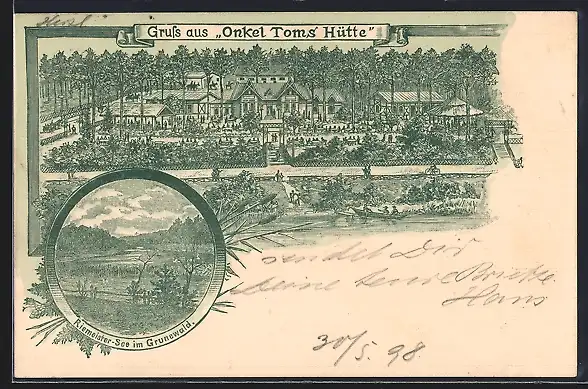 Gruß aus „Onkel Toms' Hütte"
Klemeister-See im Grunewald.
sendet Dir
Deine
Hans
30/5. 98.